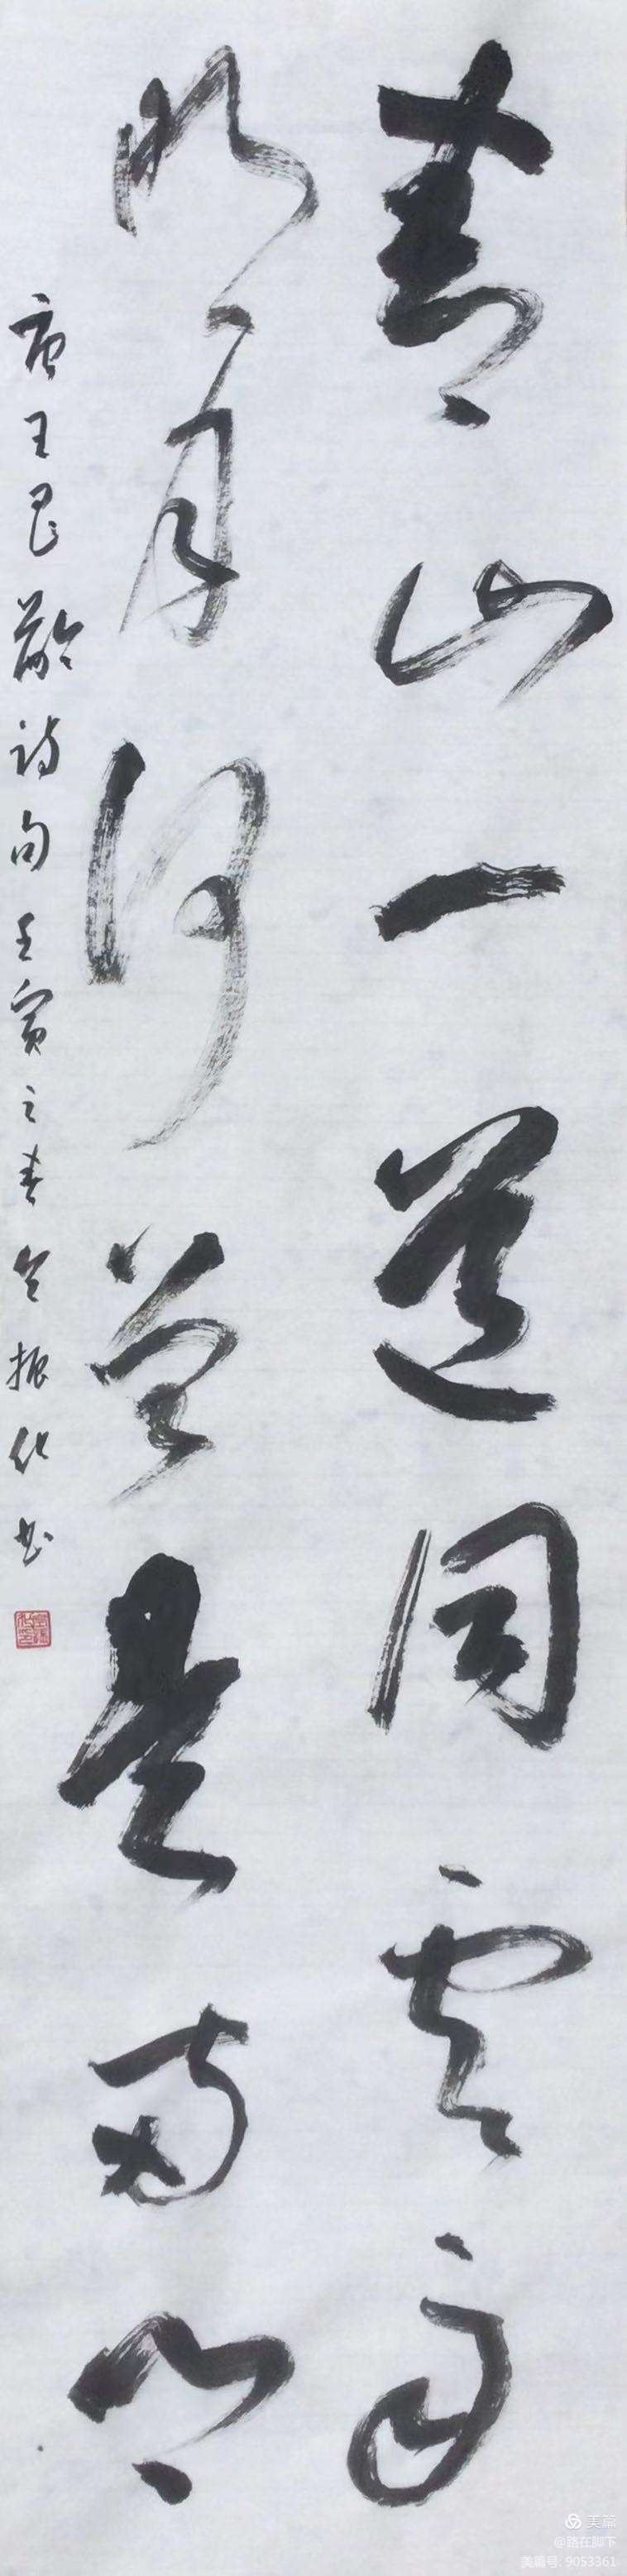 青山一道同云雨
明月何曾是两乡
唐王昌龄诗句壬寅之春全振化书
美篇
@路在脚下
美篇号:9053361